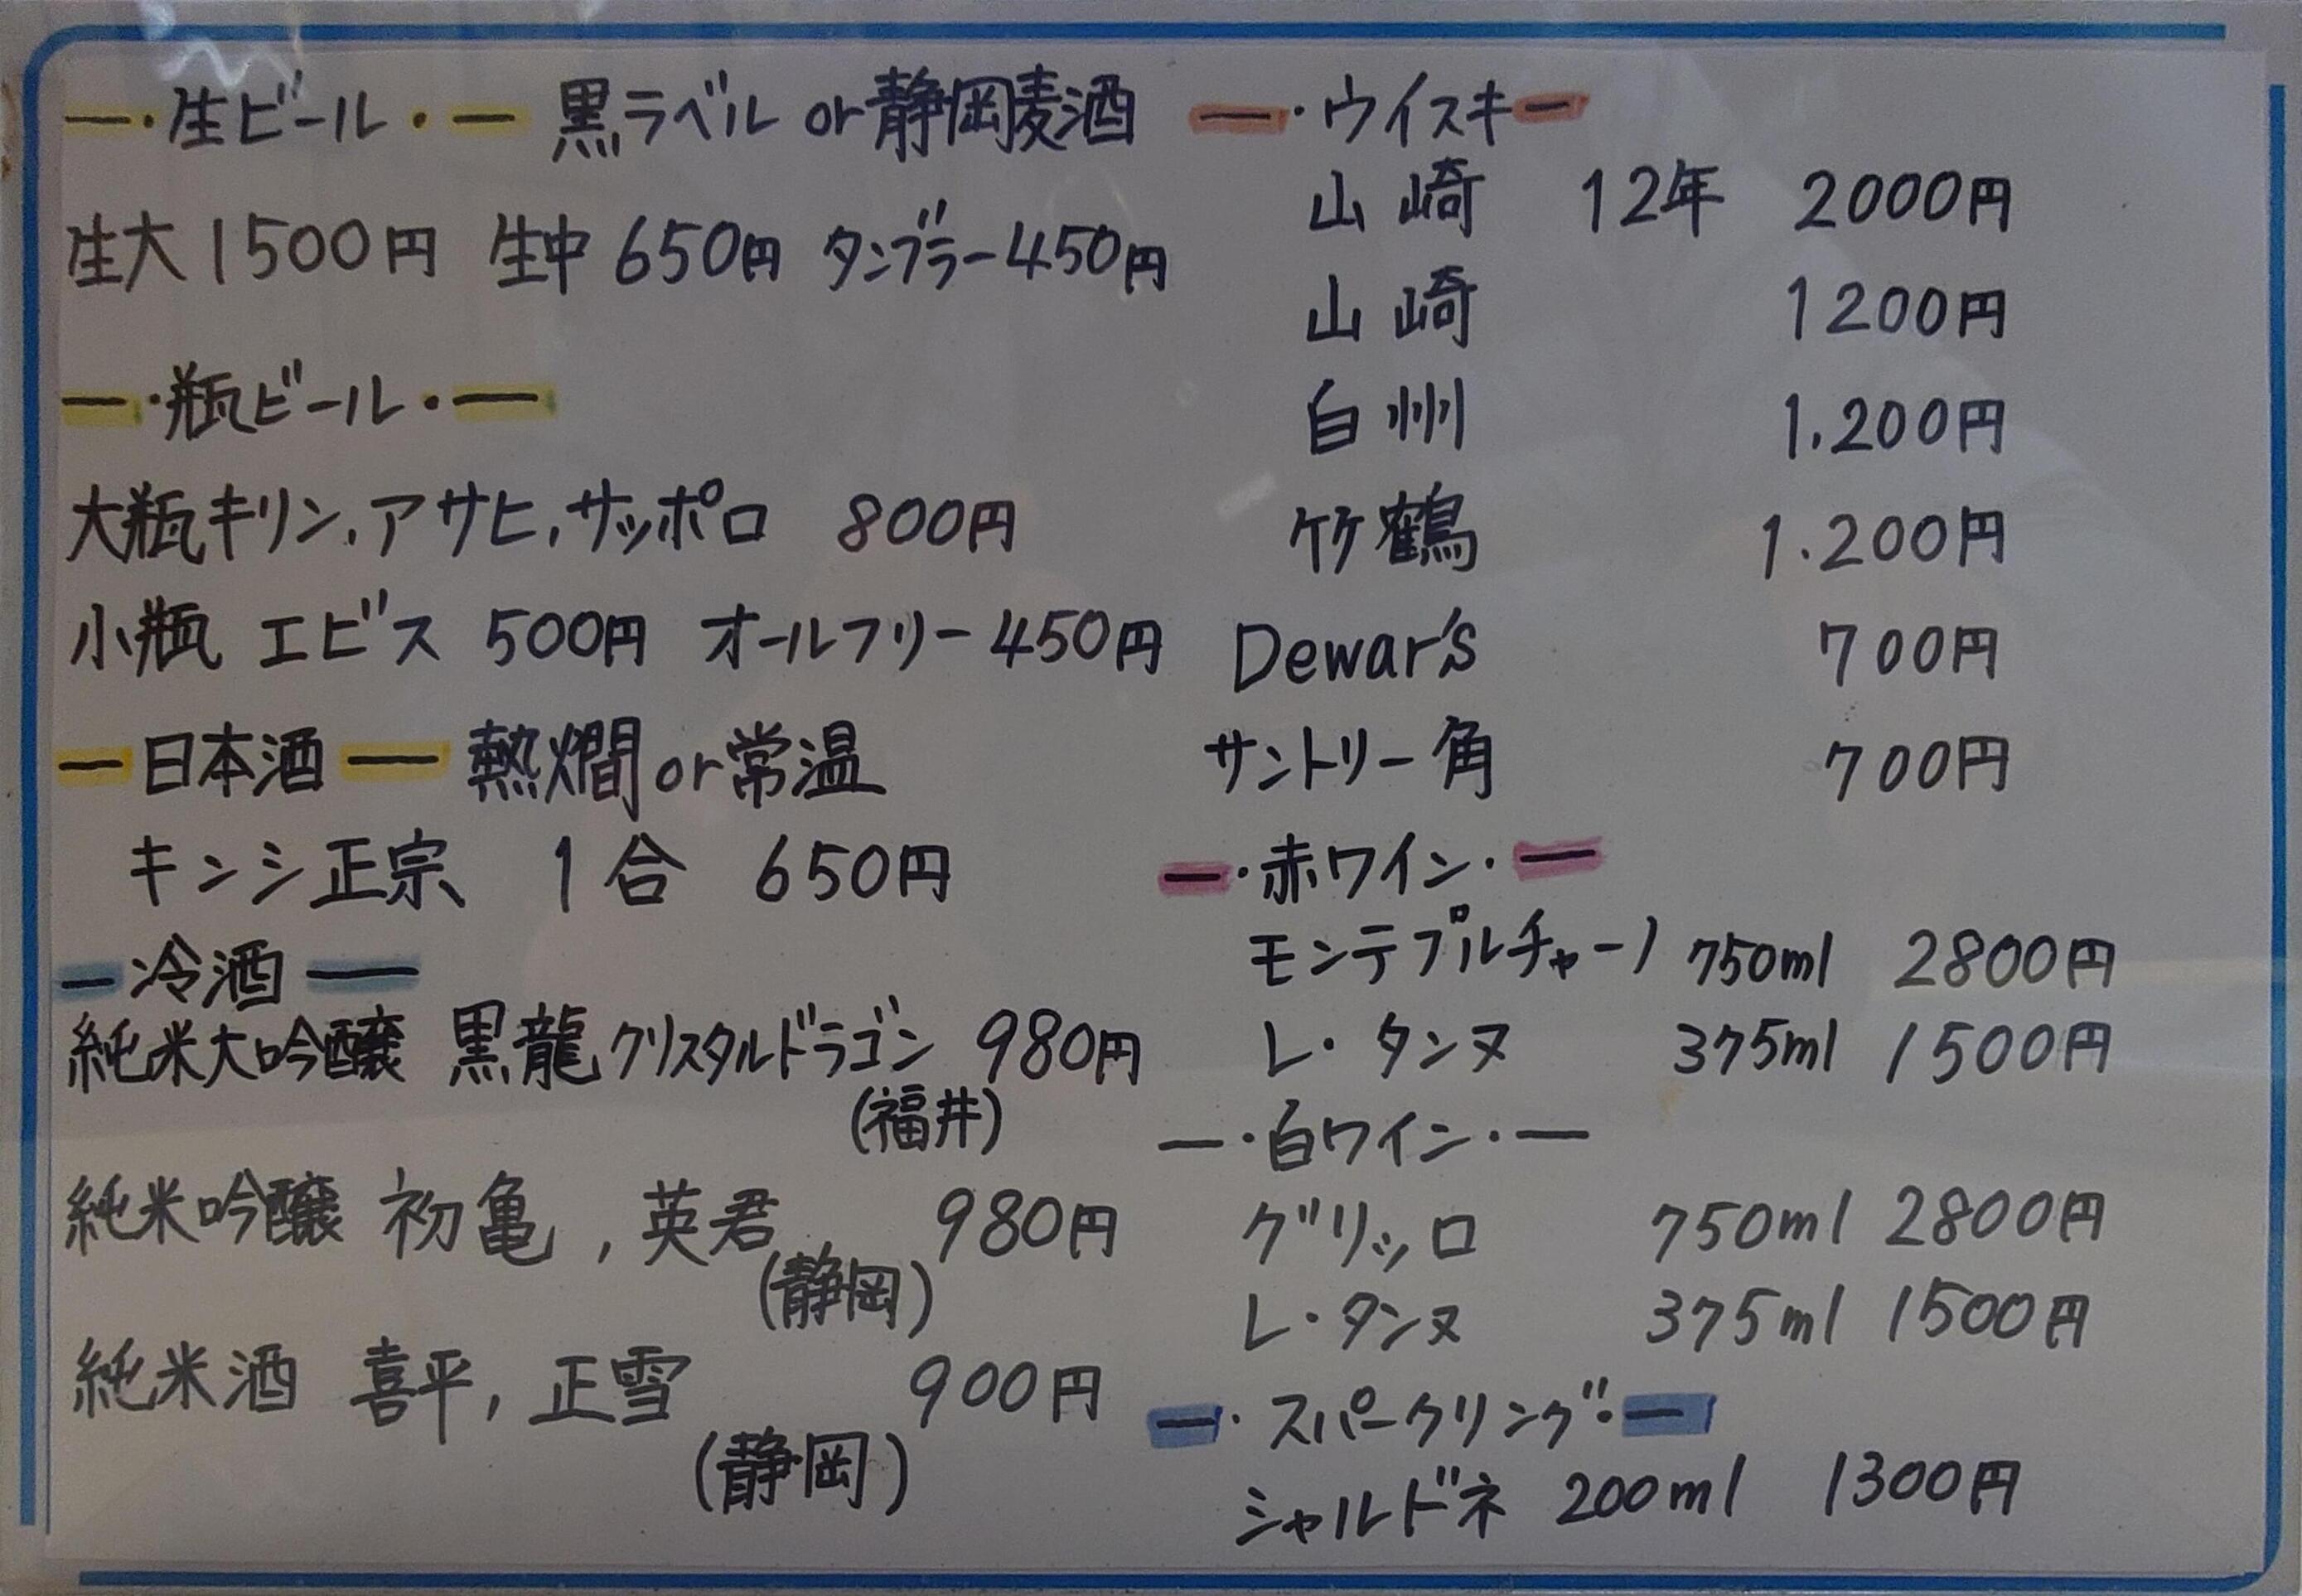 一・生ビール・一 黒ラベル or 静岡麦酒
生大 1500円 生中 650円 タンブラー 450円
一・瓶ビール・一
大瓶 キリン,アサヒ,サッポロ 800円
小瓶 エビス 500円 オールフリー 450円
一日本酒一 熱燗 or 常温
キンシ正宗 1合 650円
一冷酒一
純米大吟醸 黒龍 クリスタルドラゴン 980円
(福井)
純米吟醸 初亀,英君 980円
(静岡)
純米酒 喜平,正雪 900円
(静岡)
一・ウイスキー
山崎 12年 2000円
山崎 1200円
白州 1.200円
竹鶴 1.200円
Dewar's 700円
サントリー角 700円
一・赤ワイン・一
モンテプルチャーノ 750ml 2800円
レ・タンヌ 375ml 1500円
一・白ワイン・一
グリッロ 750ml 2800円
レ・タンヌ 375ml 1500円
一・スパークリング・一
シャルドネ 200ml 1300円